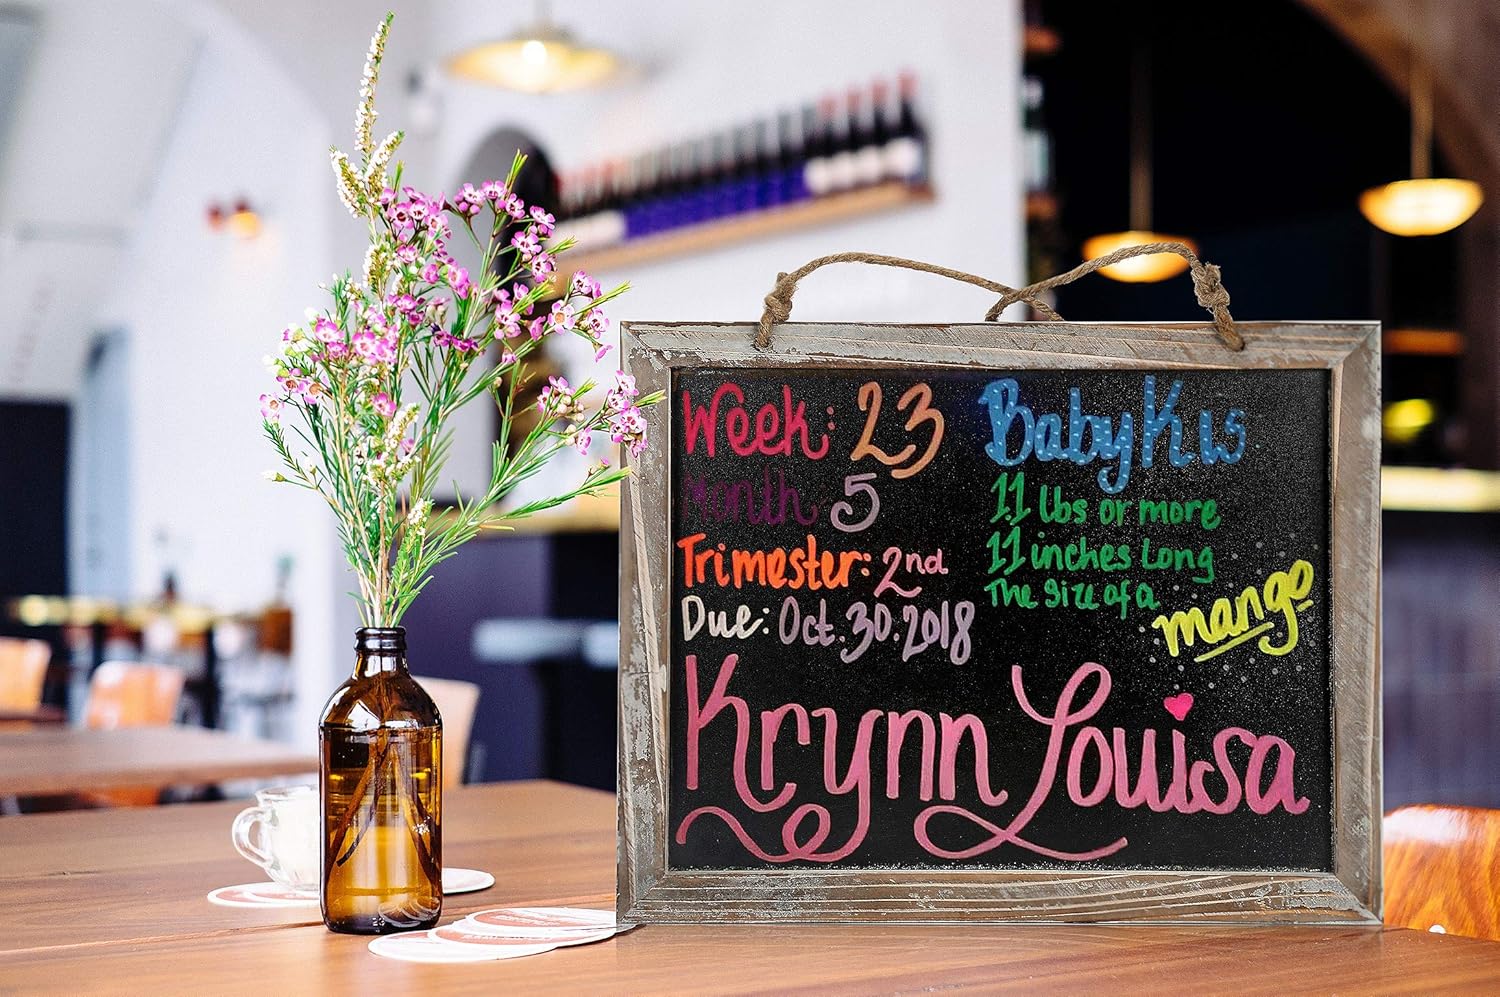 Week: 23
Month 5
Trimester: 2nd
Due: Oct. 30. 2018
Baby K is
11 lbs or more
11 inches Long
The size of a
mango
Krynn Louisa